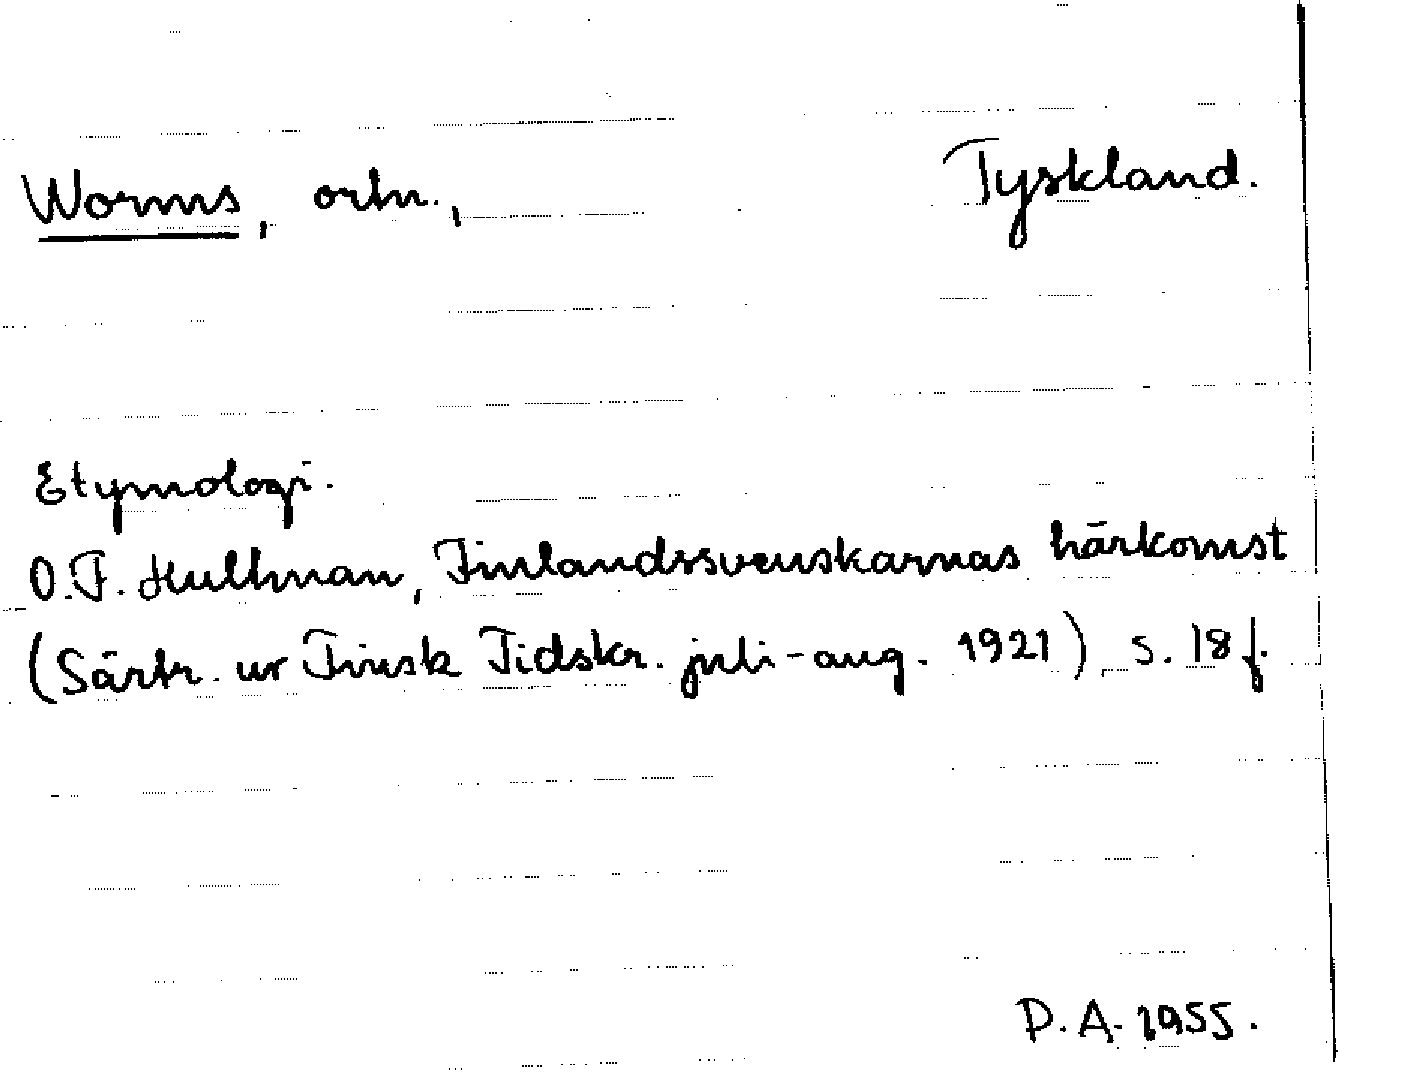 Worms, ortn., Tyskland.
Etymologi.
O.F. Hultman, Finlandssvenskarnas härkomst
(Särtr. ur Finsk Tidskr. juli-aug. 1921) s. 18 f.
P.A. 1955.